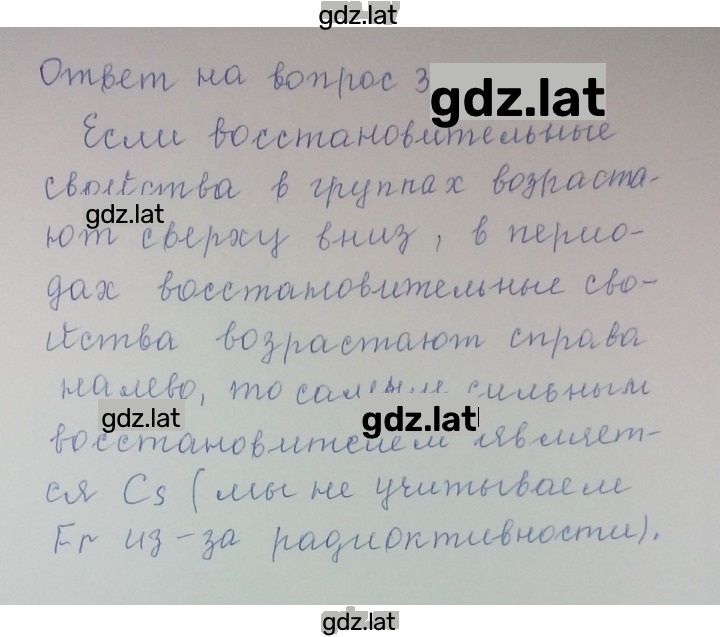 gdz.lat
Ответ на вопрос 3
gdz.lat
Если восстановительные
свойства в группах возраста-
gdz.lat
ют сверху вниз, в перио-
дах восстановительные сво-
йства возрастают справа
налево, то самым сильным
gdz.lat
gdz.lat
восстановителем являет-
ся Cs (мы не учитываем
Fr из-за радиоктивности).
gdz.lat